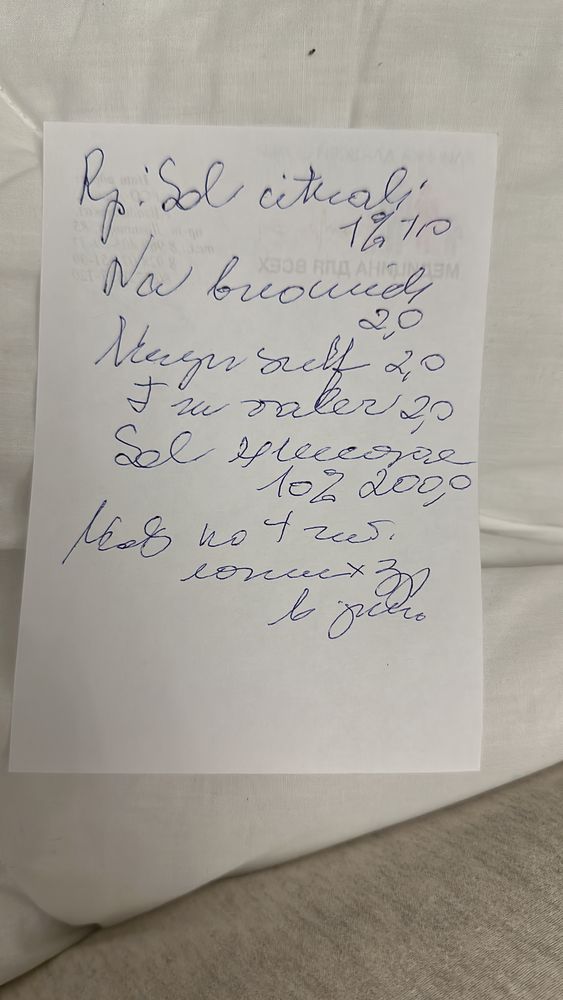 Rp: Sol citrali
1% 10
Na bromidi
2,0
Magn sulf 2,0
T-ra valer 2,0
Sol глюкозае
10% 200,0
по 1 чт.
ложке x 3р
в день
МЕДИЦИНА ДЛЯ ВСЕХ